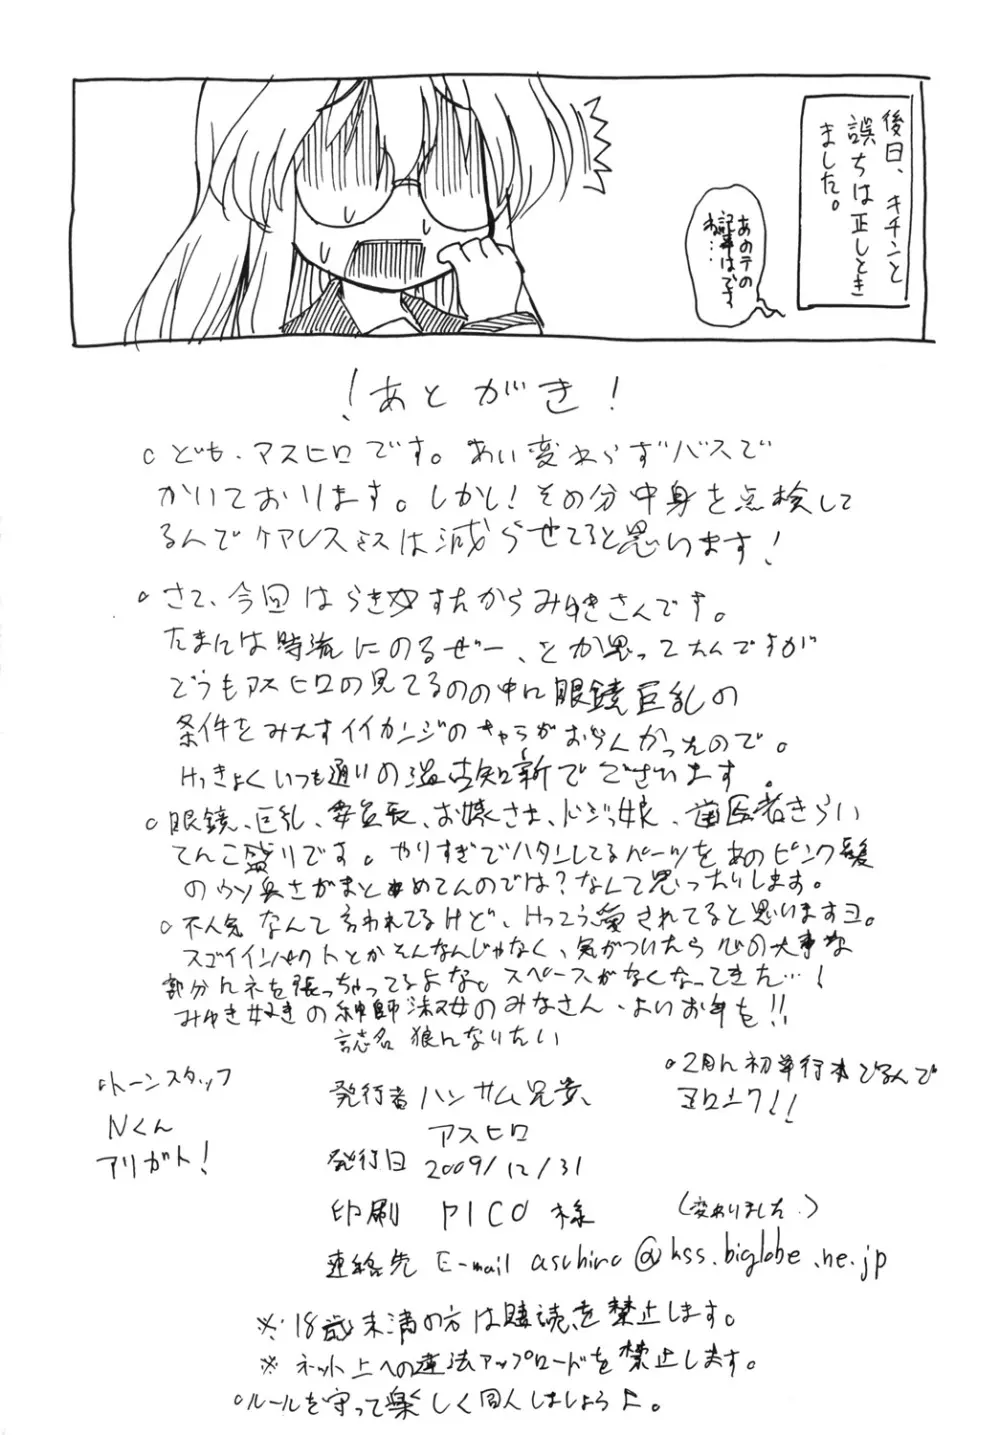 後日、キチンと
誤ちは正しとき
ました。
あのテの
記事はです
ね…
!あとがき!
○ども、アスヒロです。あい変わらずバスで
かいております。しかし!その分中身を点検して
るんでケアレスミスは減らせてると思います!
○さて、今回はらき☆すたからみゆきさんです。
たまには時流にのるぜー、とか思ってたんですが
どうもアスヒロの見てるのの中に眼鏡巨乳の
条件をみたすイイカンジのキャラがおらんかったので。
けっきょくいつも通りの温古知新でございます。
○眼鏡、巨乳、委員長、お嬢さま、ドジっ娘、歯医者きらい
てんこ盛りです。やりすぎでハタンしてるパーツをあのピンク髪
のウソ臭さがまとめてんのでは?なんて思ったりします。
○不人気なんて言われてるけど、けっこう愛されてると思いますヨ。
スゴイインパクトとかそんなんじゃなく、気がついたら心の大事な
部分にネを張っちゃってるよな。スペースがなくなってきた…!
みゆき好きの紳師淑女のみなさん、よいお年を!!
誌名 狼になりたい
発行者 ハンサム兄貴、
アスヒロ
発行日 2009/12/31
印刷 PICO 様
(変わりました。)
連絡先 E-mail asuhiro@kss.biglobe.ne.jp
○トーンスタッフ
Nくん
アリガト!
○2月に初単行本でるんで
ヨロシク!!
※18歳未満の方は購読を禁止します。
※ネット上への違法アップロードを禁止します。
○ルールを守って楽しく同人しましょうよ。